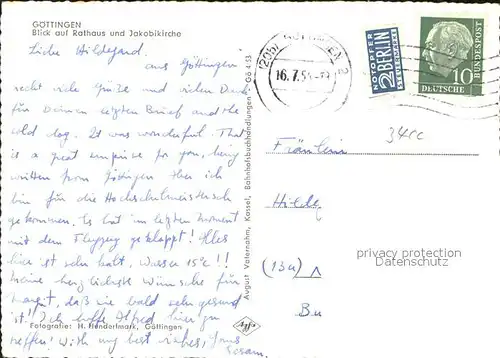 GÖTTINGEN
Blick auf Rathaus und Jakobikirche
Liebe Hildegard.
aus Göttingen
recht viele Grüße und vielen Dank
für Deinen letzten Brief and the
old dog. It was wonderful. That
is a great surprise for you, being
written from Göttingen. Hier ich
bin für die Hochschulmeistersch.
gekommen. Es hat im letzten Moment
mit dem Flugzeug geklappt! Alles
hier ist sehr kalt, Wasser 15°C!!
Meine herzlichste Wünsche für
Margit, daß sie bald sehr gesund
ist! Ich hoffe Alfred hier zu
treffen! With my best wishes, Yours
Fotografie: H. Hendertmark, Göttingen
August Vaternahm, Kassel, Bahnhofsbuchhandlungen Gö 4 53
Agfa
GÖTTINGEN 2
16.7.5
NOTOPFER
2 BERLIN
STEUERMARKE
10
DEUTSCHE
BUNDESPOST
34rc
Fräulein
Hilde
(13a)
privacy protection
Datenschutz